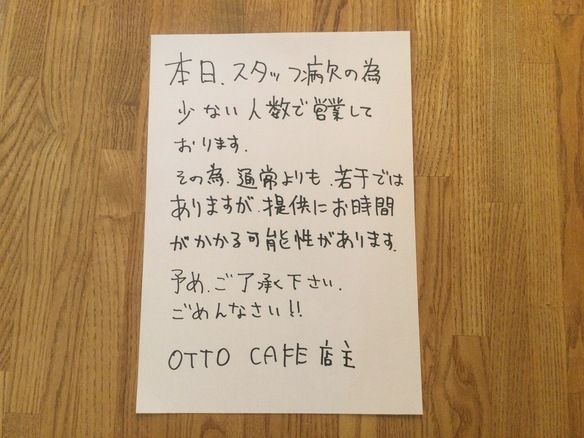 本日、スタッフ病欠の為
少ない人数で営業して
おります。
その為、通常よりも、若干では
ありますが、提供にお時間
がかかる可能性があります。
予め、ご了承下さい。
ごめんなさい!!
OTTO CAFE 店主